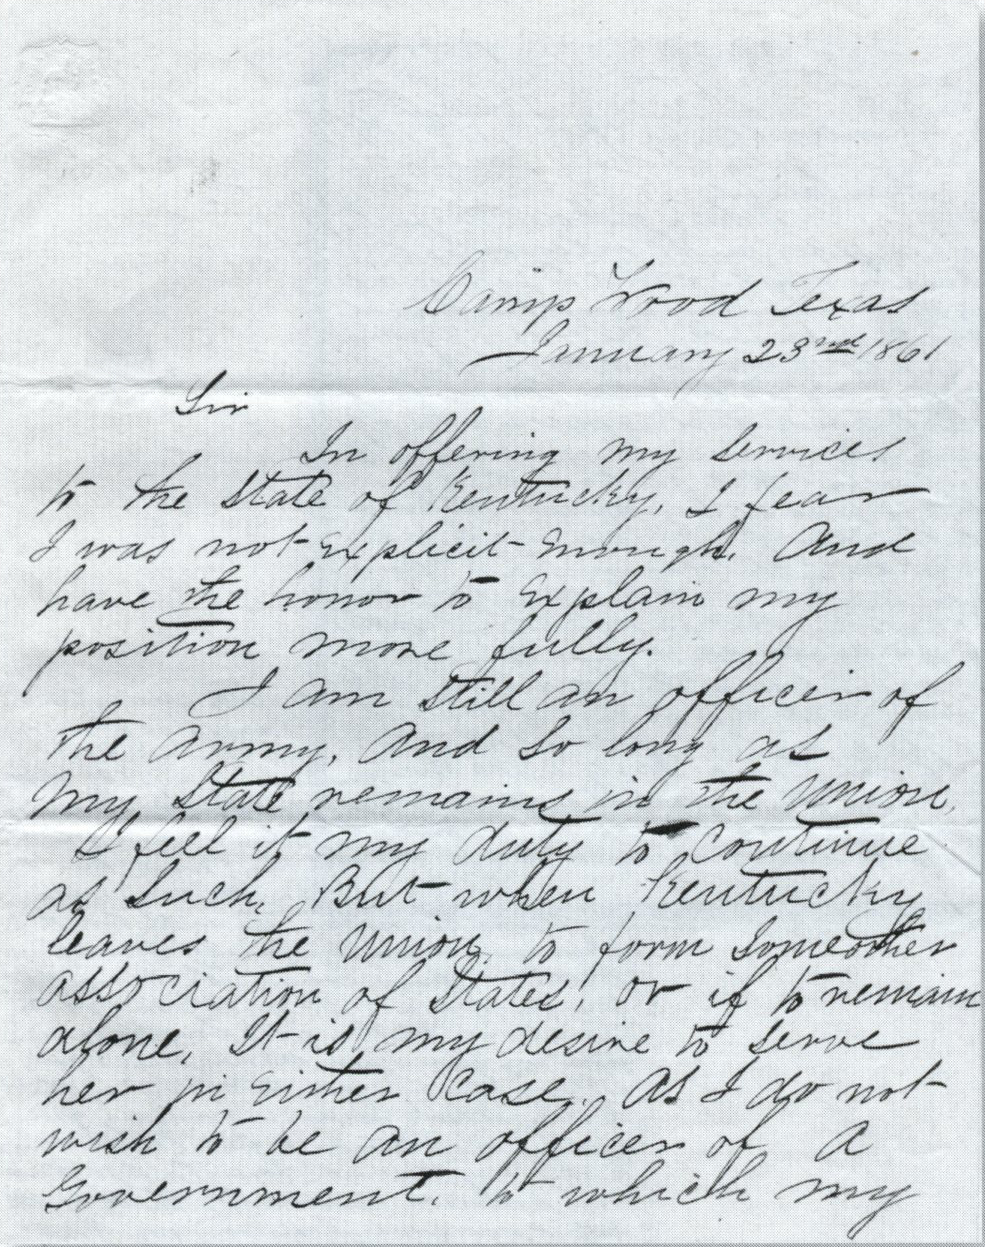 Camp Wood Texas
January 23nd 1861
Sir
In offering my services
to the State of Kentucky, I fear
I was not explicit enough. And
have the honor to explain my
position more fully.
I am still an officer of
the Army, and so long as
my State remains in the Union,
I feel it my duty to continue
as such. But when Kentucky
leaves the Union, to form some other
association of States, or if to remain
alone, It is my desire to serve
her in either case. As I do not
wish to be an officer of a
Government, to which my